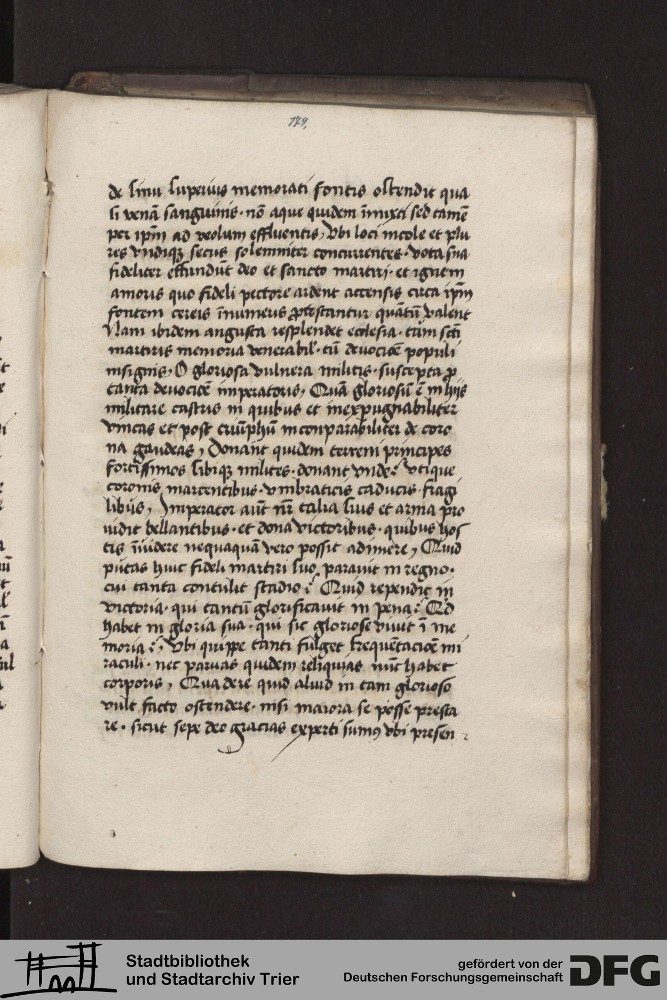 179
de sinu superius memorati fontis ostendit qua
si venā sanguinis · nō aque quidem īmixti sed tamē
per ipm̄ ad ysolum effluentis, Vbi loci incole et plu
res vndiqꝫ secus solemniter concurrentes · vota sua
fideliter effundūt deo et sancto martiri · et ignem
amoris quo fideli pectore ardent accensis circa ipm̄
fontem cereis īnumeris ꝓtestantur quātū valent
Nam ibidem angusta resplendet ecclesia · tūm scti
martiris memoria venerabil' · tū deuociōe populi
insignis, O gloriosa vulnera militis · suscepta ꝓ
tanta deuociōe imperatoris, Quā gloriosū ē in hijs
militare castris in quibus et inexpugnabiliter
vincas et post triūphū incomparabiliter de coro
na gaudeas, Donant quidem terreni principes
fortissimos sibiqꝫ milites · donant vnde? vtique
coronis marcentibus · vmbraticis caducis · fragi
libus, Imperator aūt nr̄ talia suis et arma pro
uidit bellantibus · et dona victoribus · quibus hos
tis īuidere nequaquā vero possit adimere, Quid
putas huic fideli martiri suo parauit in regno ·
cui tanta contulit stadio? Quid rependit in
victoria · qui tantū glorificauit in pena? Qd
habet in gloria sua · qui sic gloriose viuit ī me
moria? Vbi quippe tanti fulget frequētacōe mi
raculi · nec paruas quidem reliquias nūc habet
corporis, Qua de re quid aliud in tam glorioso
vult facto ostendere · nisi maiora se posse presta
re · sicut sepe deo gracias experti sumꝰ vbi presen
Stadtbibliothek
und Stadtarchiv Trier
gefördert von der
Deutschen Forschungsgemeinschaft
DFG